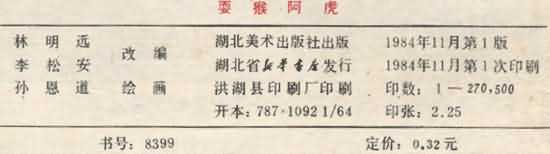 耍猴阿虎
林明远 改编 湖北美术出版社出版 1984年11月第1版
李松安 湖北省新华书店发行 1984年11月第1次印刷
孙恩道 绘画 洪湖县印刷厂印刷 印数：1—270,500
开本：787×1092 1/64 印张：2.25
书号：8399 定价：0.32元